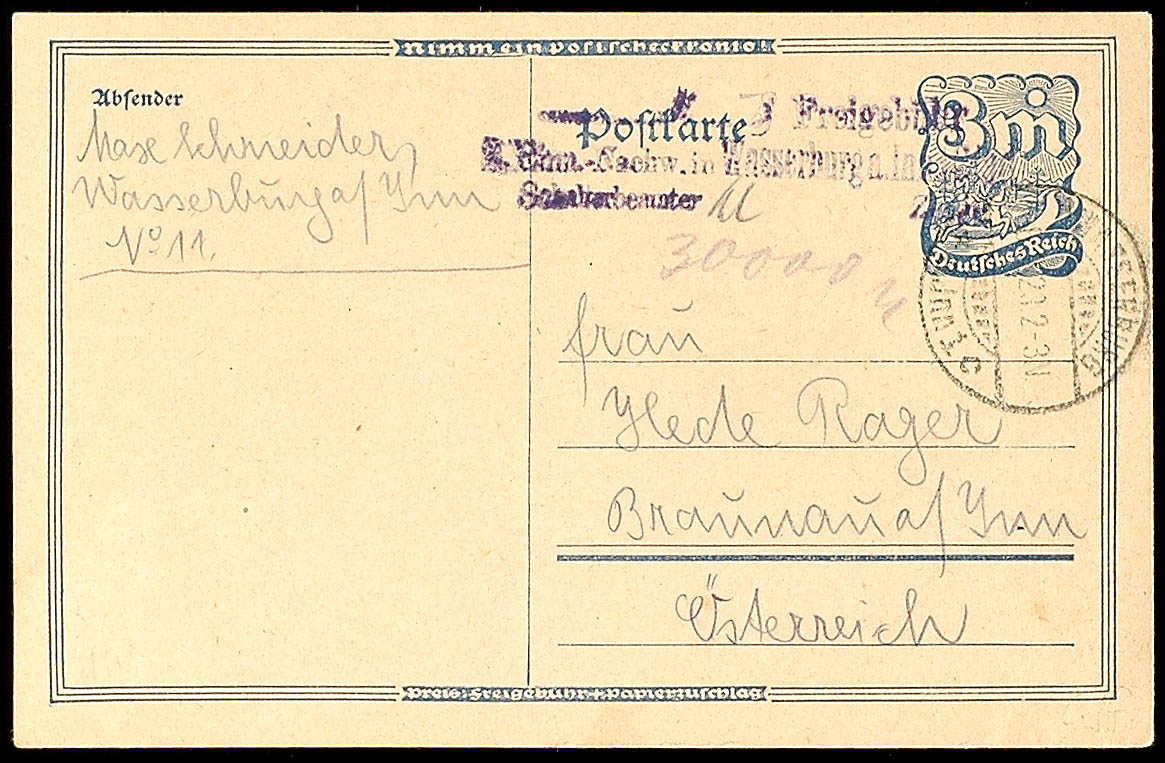 Nimm ein Postscheckkonto!
Absender
Max Schneider,
Wasserburg a/ Inn
No 11.
Postkarte
Freigebühr
Nachw. in Wasserburg a. Inn
Schalterbeamter
30000 M
3 m
Deutsches Reich
2-3N.
Frau
Hede Rager
Braunau a/ Inn
Österreich
Preis: Freigebühr + Papierzuschlag